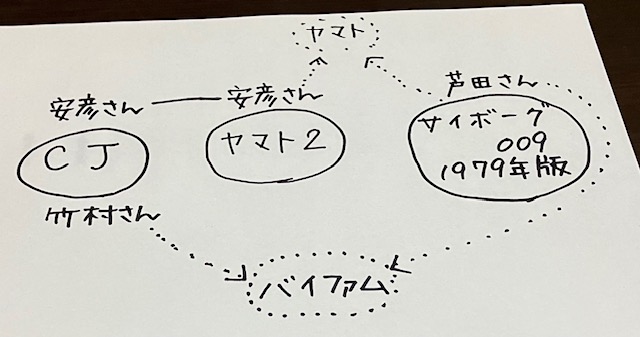 ヤマト
安彦さん
安彦さん
芦田さん
CJ
ヤマト2
サイボーグ
009
1979年版
竹村さん
バイファム